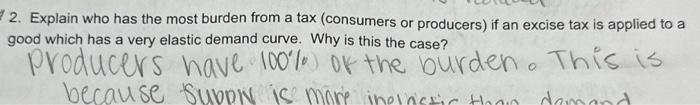 2. Explain who has the most burden from a tax (consumers or producers) if an excise tax is applied to a
good which has a very elastic demand curve. Why is this the case?
producers have 100% of the burden. This is
because supply is more inelastic than demand